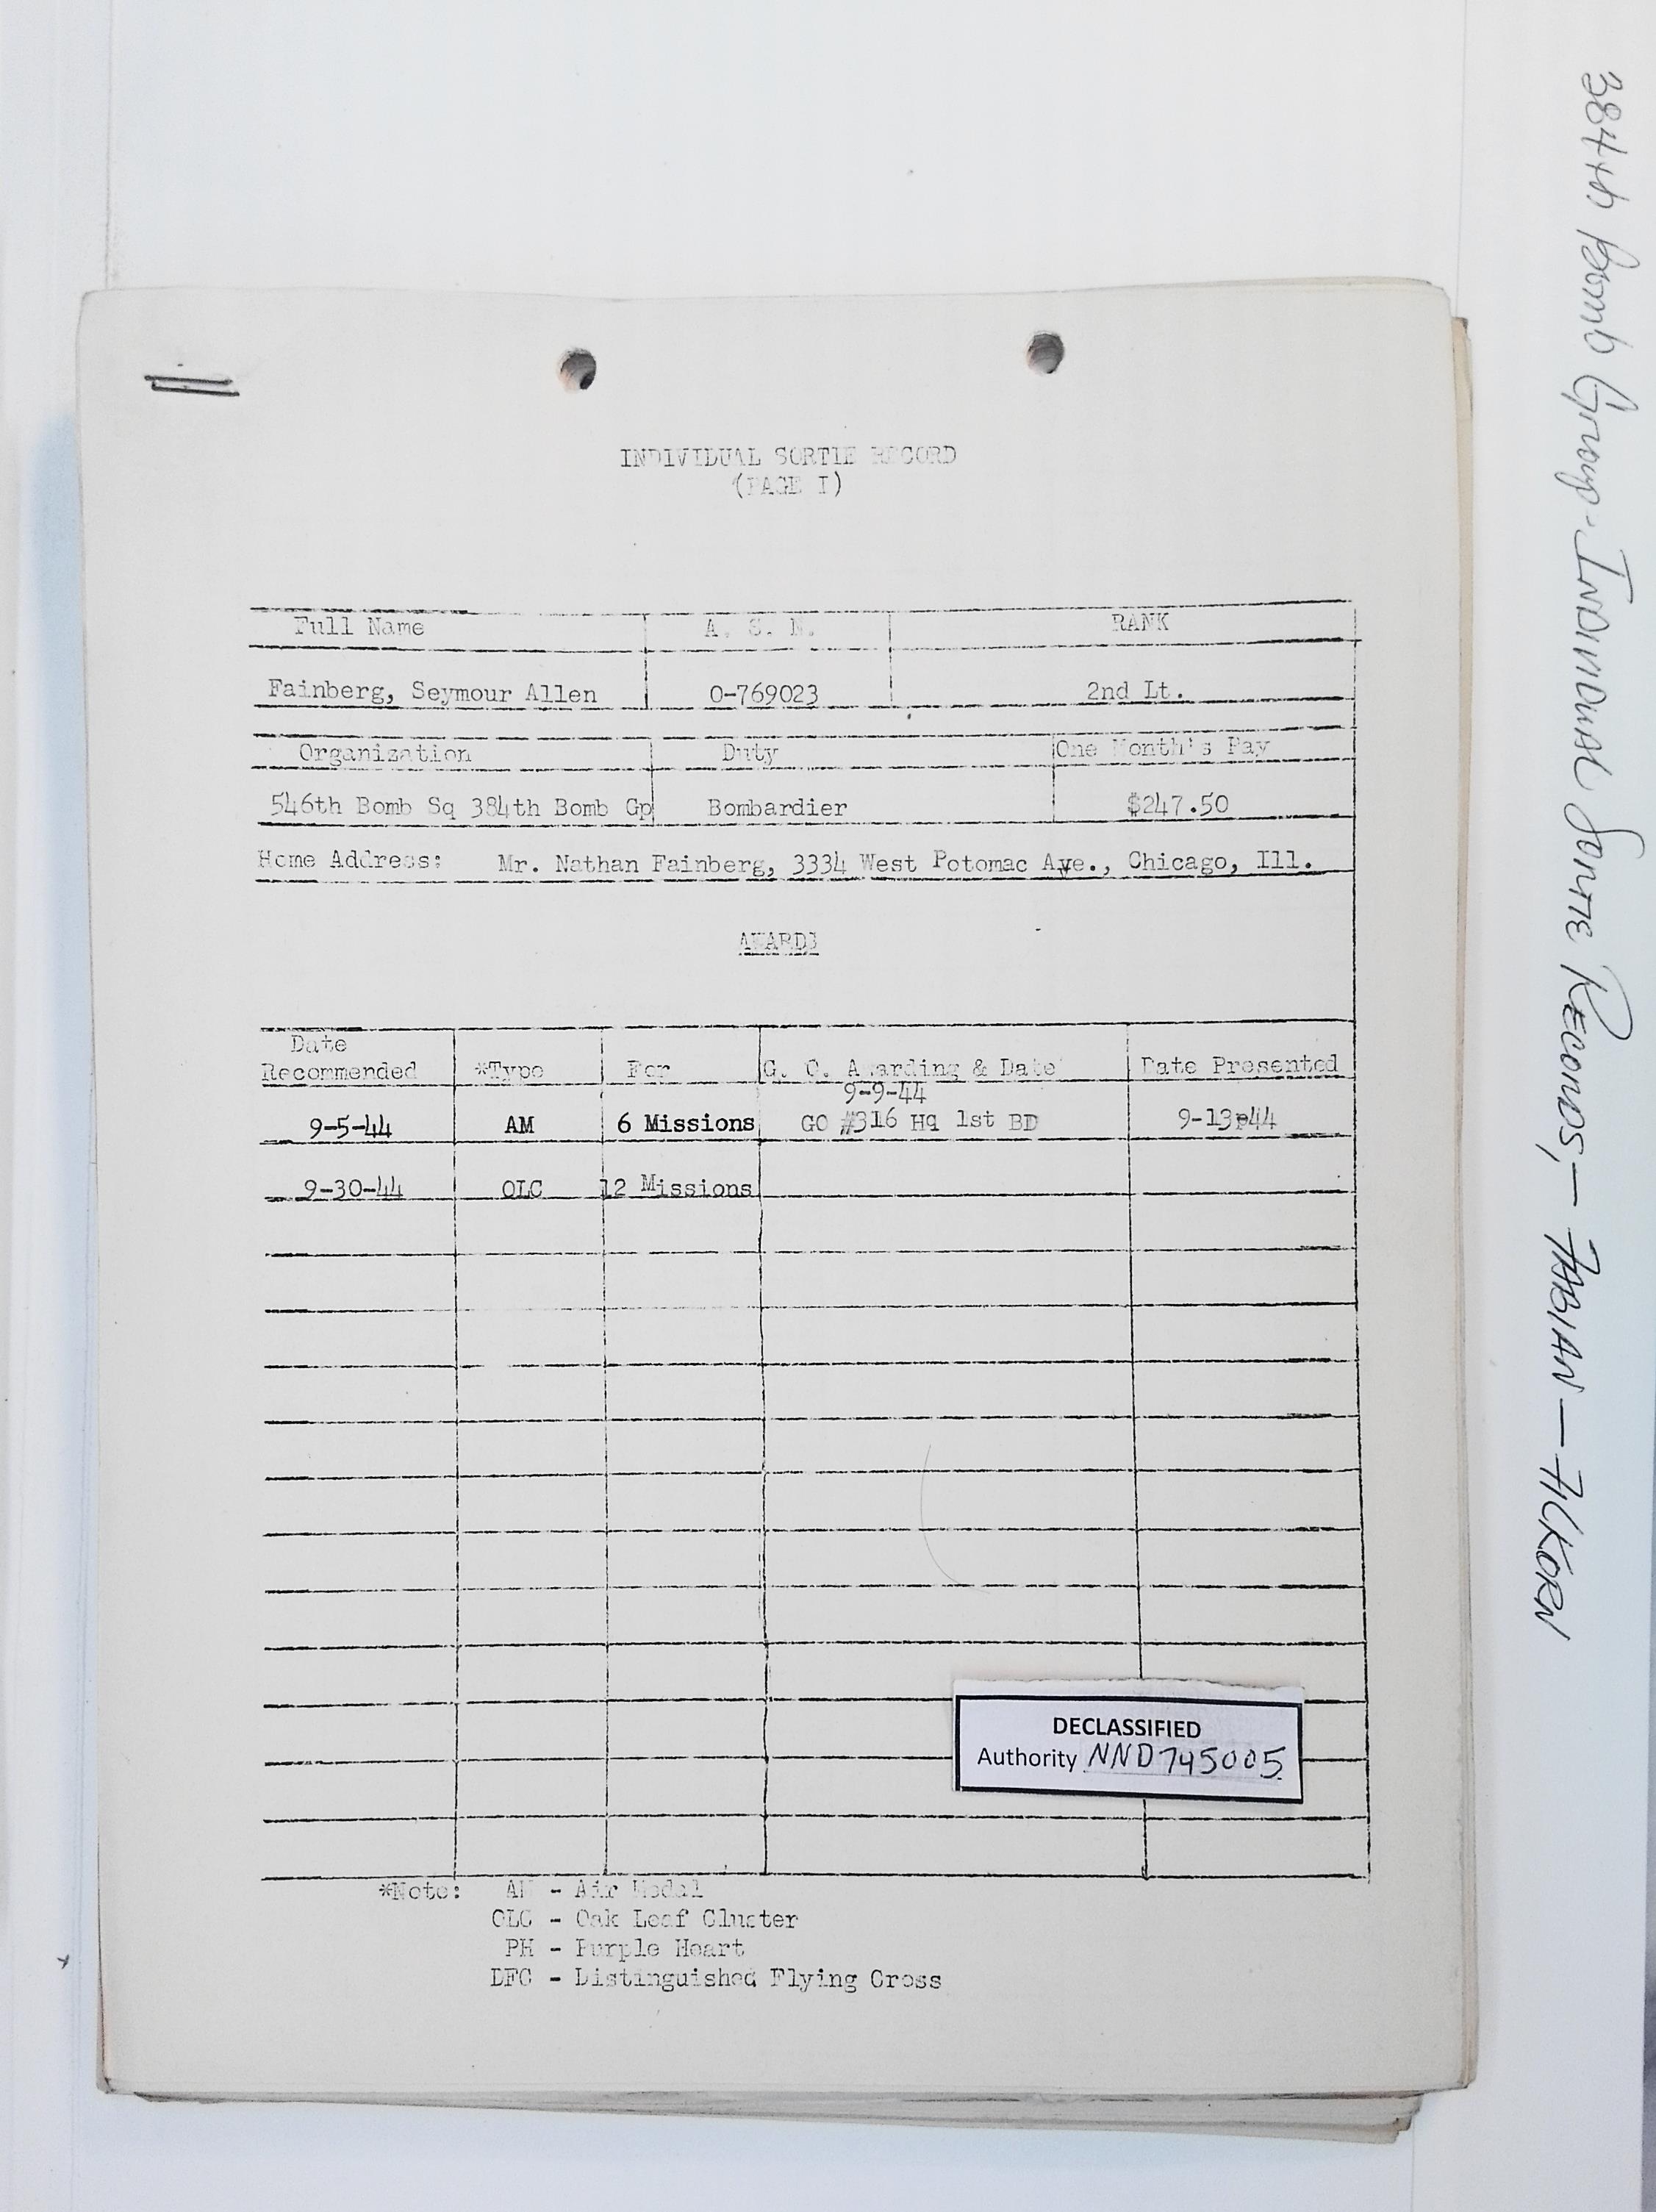 INDIVIDUAL SORTIE RECORD
(PAGE I)
Full Name A. S. N. RANK
Fainberg, Seymour Allen 0-769023 2nd Lt.
Organization Duty One Month's Pay
546th Bomb Sq 384th Bomb Gp Bombardier $247.50
Home Address: Mr. Nathan Fainberg, 3334 West Potomac Ave., Chicago, Ill.
AWARDS
Date
Recommended *Type For G. O. Awarding & Date Date Presented
9-9-44
9-5-44 AM 6 Missions GO #316 Hq 1st BD 9-13p44
9-30-44 OLC 12 Missions
DECLASSIFIED
Authority NND745005
*Note: AM - Air Medal
OLC - Oak Leaf Cluster
PH - Purple Heart
DFC - Distinguished Flying Cross
384th Bomb Group - INDIVIDUAL SORTIE RECORDS, - FABIAN - FILKORN